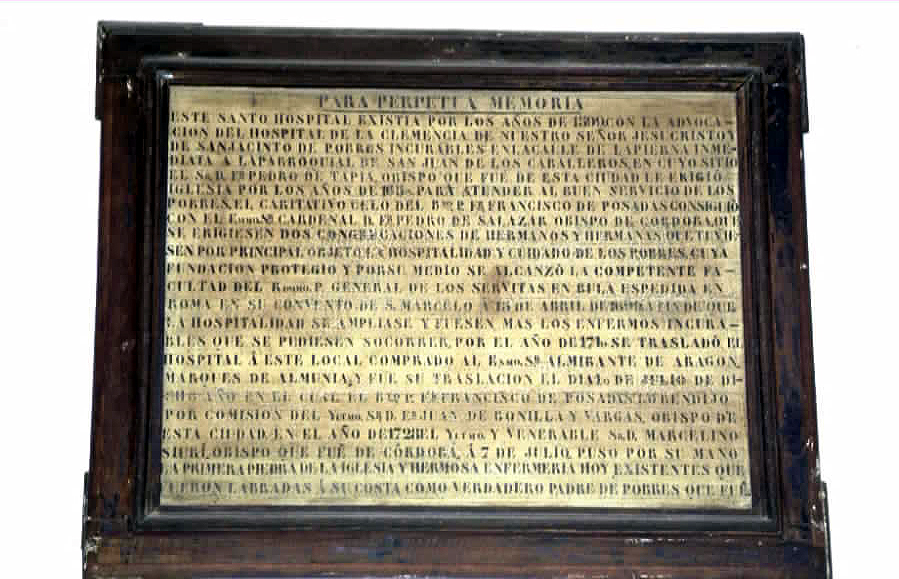 PARA PERPETUA MEMORIA
ESTE SANTO HOSPITAL EXISTIA POR LOS AÑOS DE CON LA ADVOCA-
CION DEL HOSPITAL DE LA CLEMENCIA DE NUESTRO SEÑOR JESUCRISTO Y
DE SAN JACINTO DE POBRES INCURABLES EN LA CALLE DE LA PIERNA INME-
DIATA A LA PARROQUIAL DE SAN JUAN DE LOS CABALLEROS, EN CUYO SITIO
EL SR. D. FR. PEDRO DE TAPIA, OBISPO QUE FUE DE ESTA CIUDAD LE ERIGIÓ
IGLESIA POR LOS AÑOS DE PARA ATENDER AL BUEN SERVICIO DE LOS
POBRES, EL CARITATIVO CELO DEL BTO. P. FR. FRANCISCO DE POSADAS CONSIGUIÓ
CON EL EMMO. SR. CARDENAL D. FR. PEDRO DE SALAZAR OBISPO DE CORDOBA, QUE
SE ERIGIESEN DOS CONGREGACIONES DE HERMANOS Y HERMANAS QUE TUVIE-
SEN POR PRINCIPAL OBJETO LA HOSPITALIDAD Y CUIDADO DE LOS POBRES, CUYA
FUNDACION PROTEGIO Y POR SU MEDIO SE ALCANZÓ LA COMPETENTE FA-
CULTAD DEL RMMO. P. GENERAL DE LOS SERVITAS EN BULA ESPEDIDA EN
ROMA EN SU CONVENTO DE S. MARCELO DE ABRIL DE FIN DE QUE
LA HOSPITALIDAD SE AMPLIASE Y FUESEN MAS LOS ENFERMOS INCURA-
BLES QUE SE PUDIESEN SOCORRER, POR EL AÑO DE SE TRASLADÓ EL
HOSPITAL Á ESTE LOCAL COMPRADO AL EXMO. SR. ALMIRANTE DE ARAGON,
MARQUES DE ALMUNIA, Y FUE SU TRASLACION EL DIA DE JULIO DE DI-
AÑO EN EL CUAL EL BTO. P. FR. FRANCISCO DE POSADAS LE BENDIJO
POR COMISION DEL YLTMO. SR. D. FR. JUAN DE BONILLA Y VARGAS, OBISPO DE
ESTA CIUDAD, EN EL AÑO DE 1728 EL YLTMO. Y VENERABLE SR. D. MARCELINO
SIURI, OBISPO QUE FUÉ DE CÓRDOBA, Á 7 DE JULIO, PUSO POR SU MANO
LA PRIMERA PIEDRA DE LA IGLESIA Y HERMOSA ENFERMERIA HOY EXISTENTES QUE
FUERON LABRADAS Á SU COSTA COMO VERDADERO PADRE DE POBRES QUE FUÉ